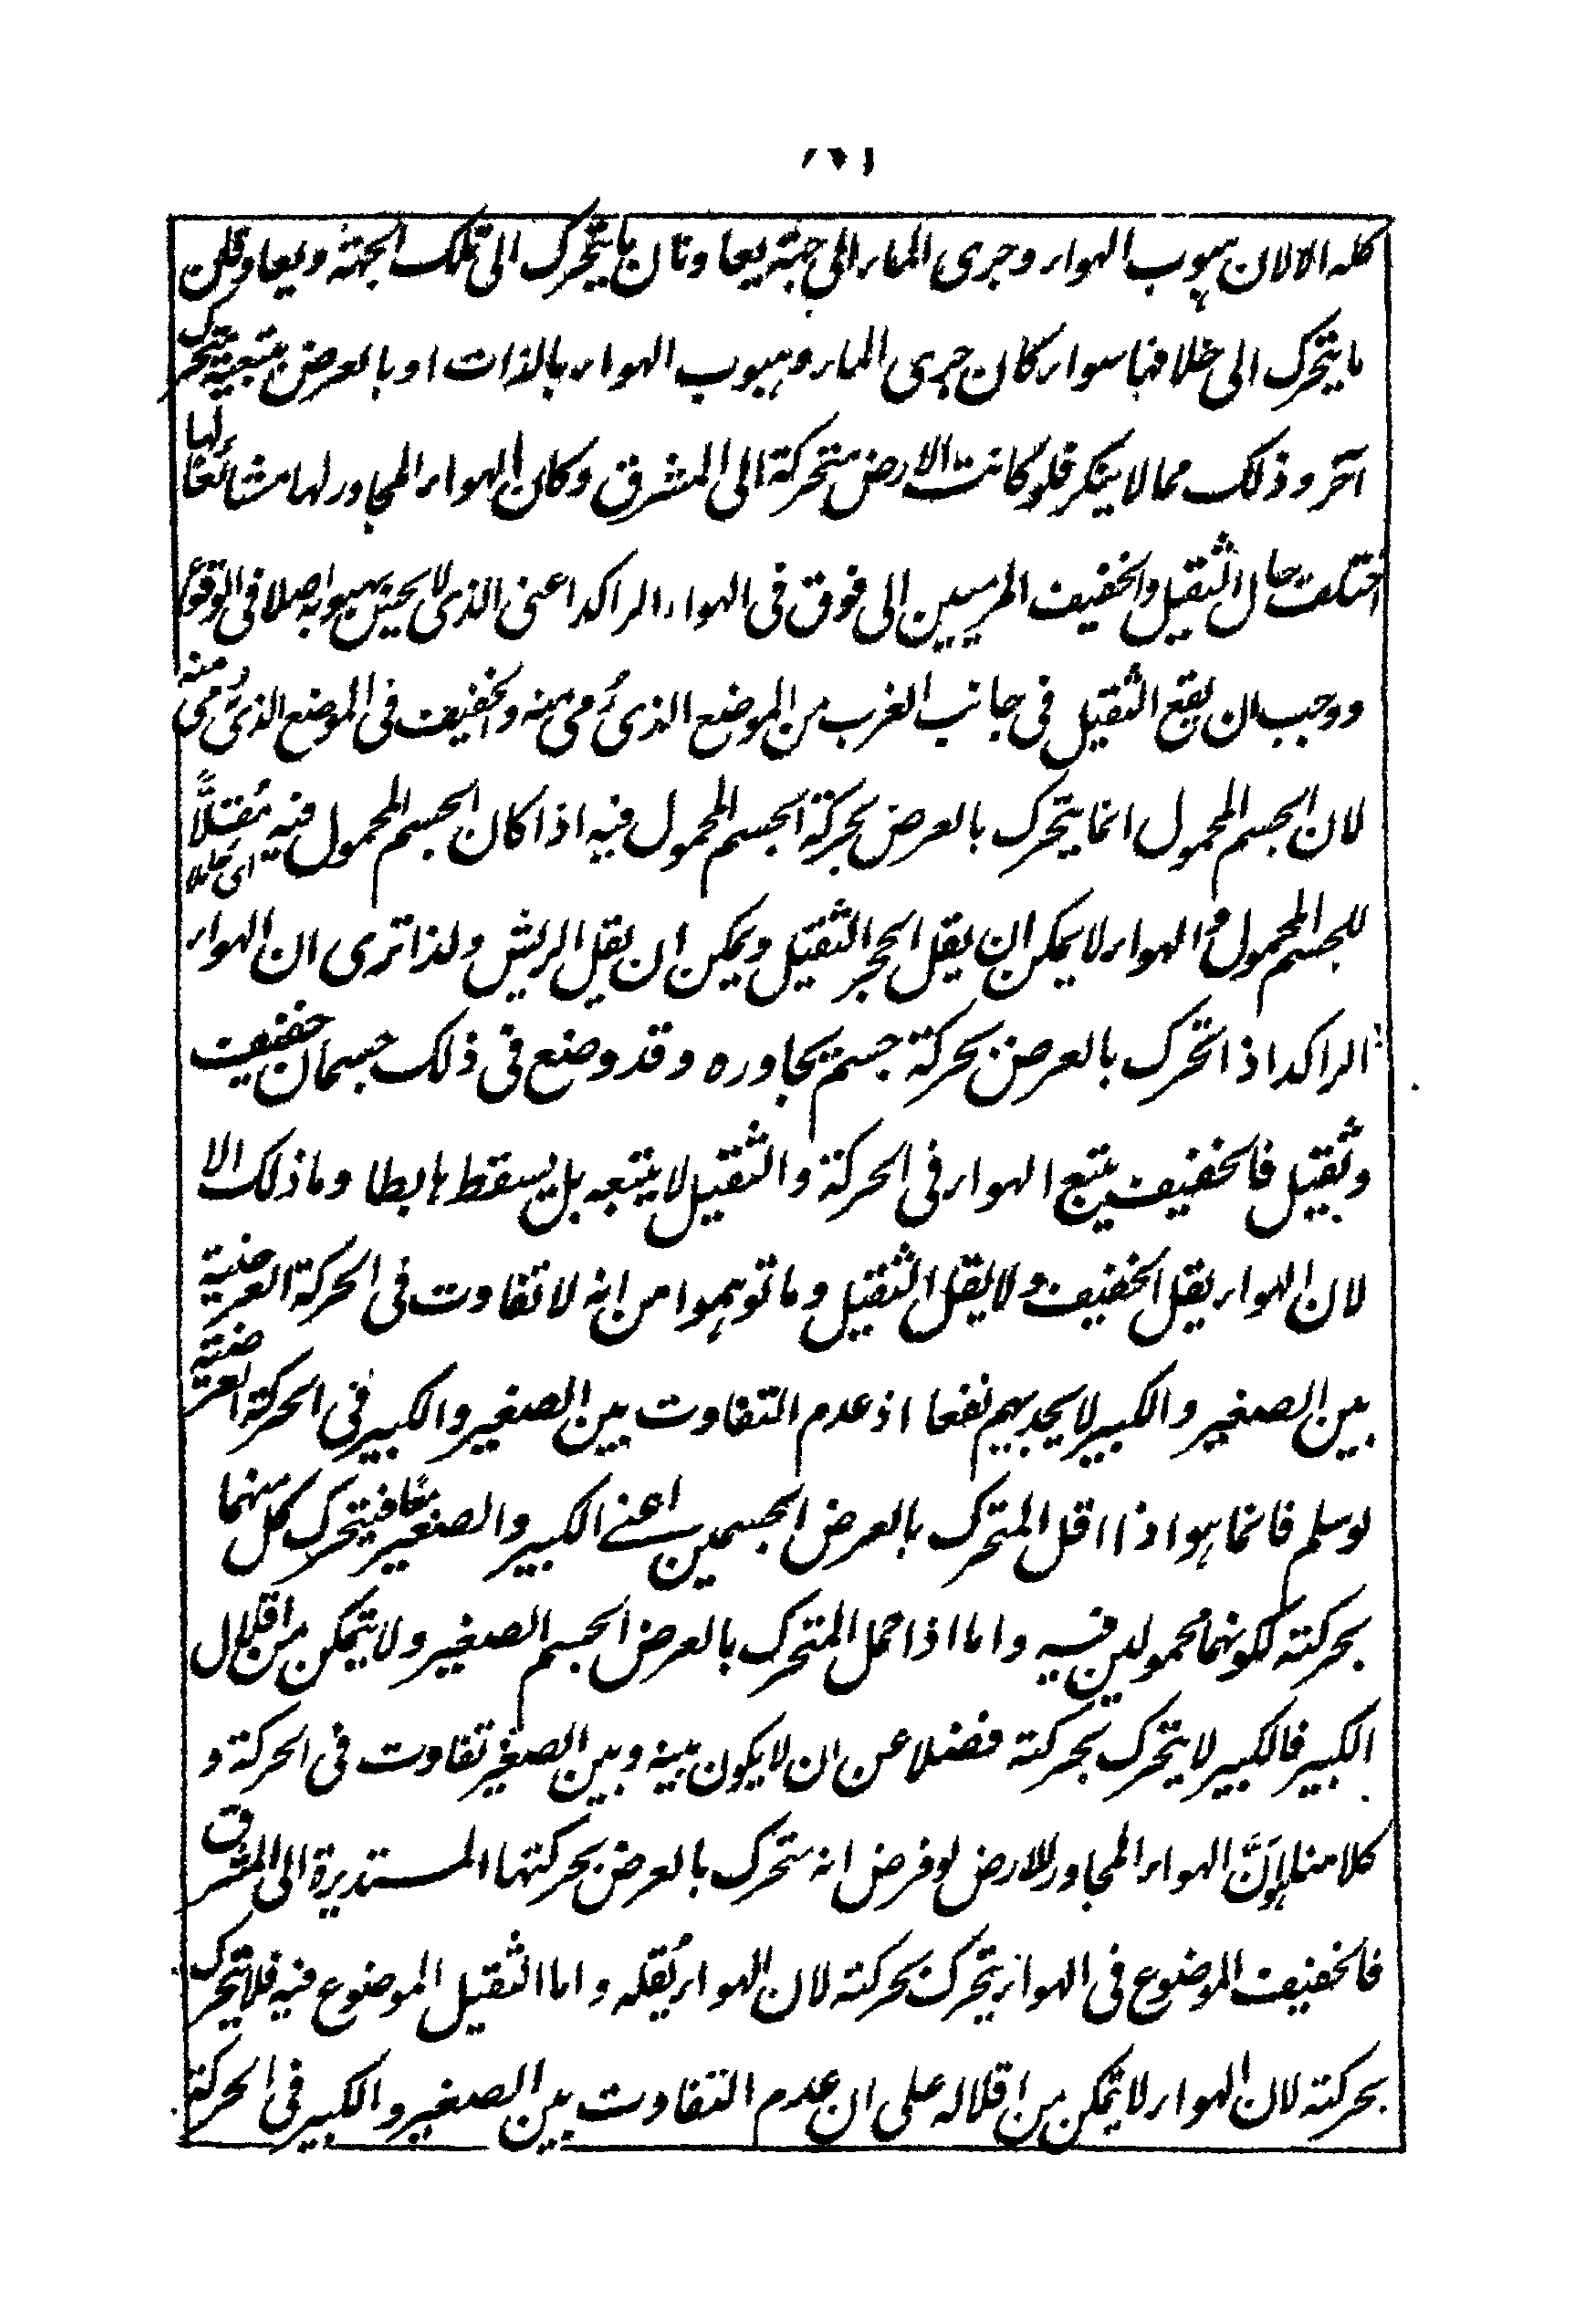 كله الا لان هبوب الهواء وجرى الماء الى جهة يعاونان ما يتحرك الى تلك الجهة ويعاوقان
ما يتحرك الى خلافها سواء كان جرى الماء وهبوب الهواء بالذات او بالعرض بتبعية متحرك
آخر وذلك مما لا ينكر فلو كانت الارض متحركة الى المشرق وكان الهواء المجاور لها مشائعًا لها
اختلف حال الثقيل والخفيف المرميين الى فوق فى الهواء الراكد اعنى الذى لا يحس بهبوبه اصلا فى الوقوع
ووجب ان يقع الثقيل فى جانب الغرب من الموضع الذى رُمى منه والخفيف فى الموضع الذى رُمى منه
لان الجسم المحمول انما يتحرك بالعرض بحركة الجسم المحمول فيه اذا كان الجسم المحمول فيه مُقِلًّا
للجسم المحمول والهواء لا يمكن ان يقل الحجر الثقيل ويمكن ان يقل الريش ولذا ترى ان الهواء
الراكد اذا تحرك بالعرض بحركة جسم يجاوره وقد وضع فى ذلك جسمان خفيف
وثقيل فالخفيف يتبع الهواء فى الحركة والثقيل لا يتبعه بل يسقط هابطا وما ذلك الا
لان الهواء يقل الخفيف ولا يقل الثقيل وما توهموا من انه لا تفاوت فى الحركة العرضية
بين الصغير والكبير لا يجديهم نفعا اذ عدم التفاوت بين الصغير والكبير فى الحركة العرضية
لو سلم فانما هو اذا اقل المتحرك بالعرض الجسمين اعنى الكبير والصغير معًا فيتحرك كل منهما
بحركته لكونهما محمولين فيه واما اذا حمل المتحرك بالعرض الجسم الصغير ولا يتمكن من اقلال
الكبير فالكبير لا يتحرك بحركته فضلا عن ان لا يكون بينه وبين الصغير تفاوت فى الحركة و
كلامنا هو اَنَّ الهواء المجاور للارض لو فرض انه متحرك بالعرض بحركتها المستديرة الى المشرق
فالخفيف الموضوع فى الهواء يتحرك بحركته لان الهواء يُقله واما الثقيل الموضوع فيه فلا يتحرك
بحركته لان الهواء لا يتمكن من اقلاله على ان عدم التفاوت بين الصغير والكبير فى الحركة